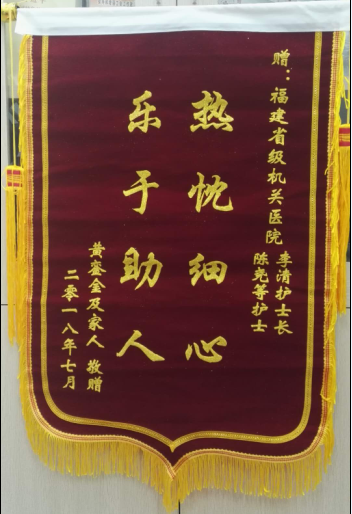 赠：福建省级机关医院
李清护士长
陈尧等护士
热忱细心
乐于助人
黄銮金及家人 敬赠
二零一八年七月